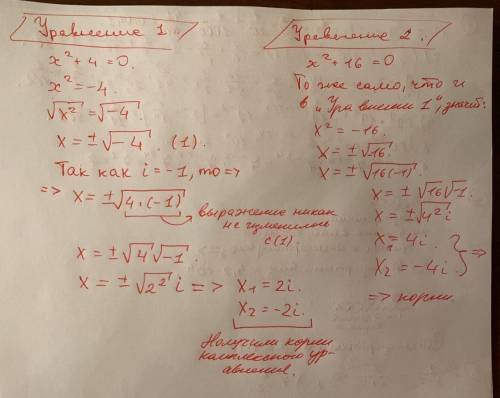 Уравнение 1.
x² + 4 = 0.
x² = -4.
√x² = √-4.
x = ±√-4. (1).
Так как i = -1, то =>
=> x = ±√4·(-1)
выражение никак
не изменилось
с (1).
x = ±√4 √-1.
x = ±√2² i => x₁ = 2i.
x₂ = -2i.
Получили корни
комплексного ур-
авнения.
Уравнение 2.
x² + 16 = 0.
То же само, что и
в "Уравнении 1", значит:
x² = -16.
x = ±√16.
x = ±√16(-1).
x = ±√16 √-1.
x = ±√4² i
x₁ = 4i.
x₂ = -4i. } =>
=> корни.